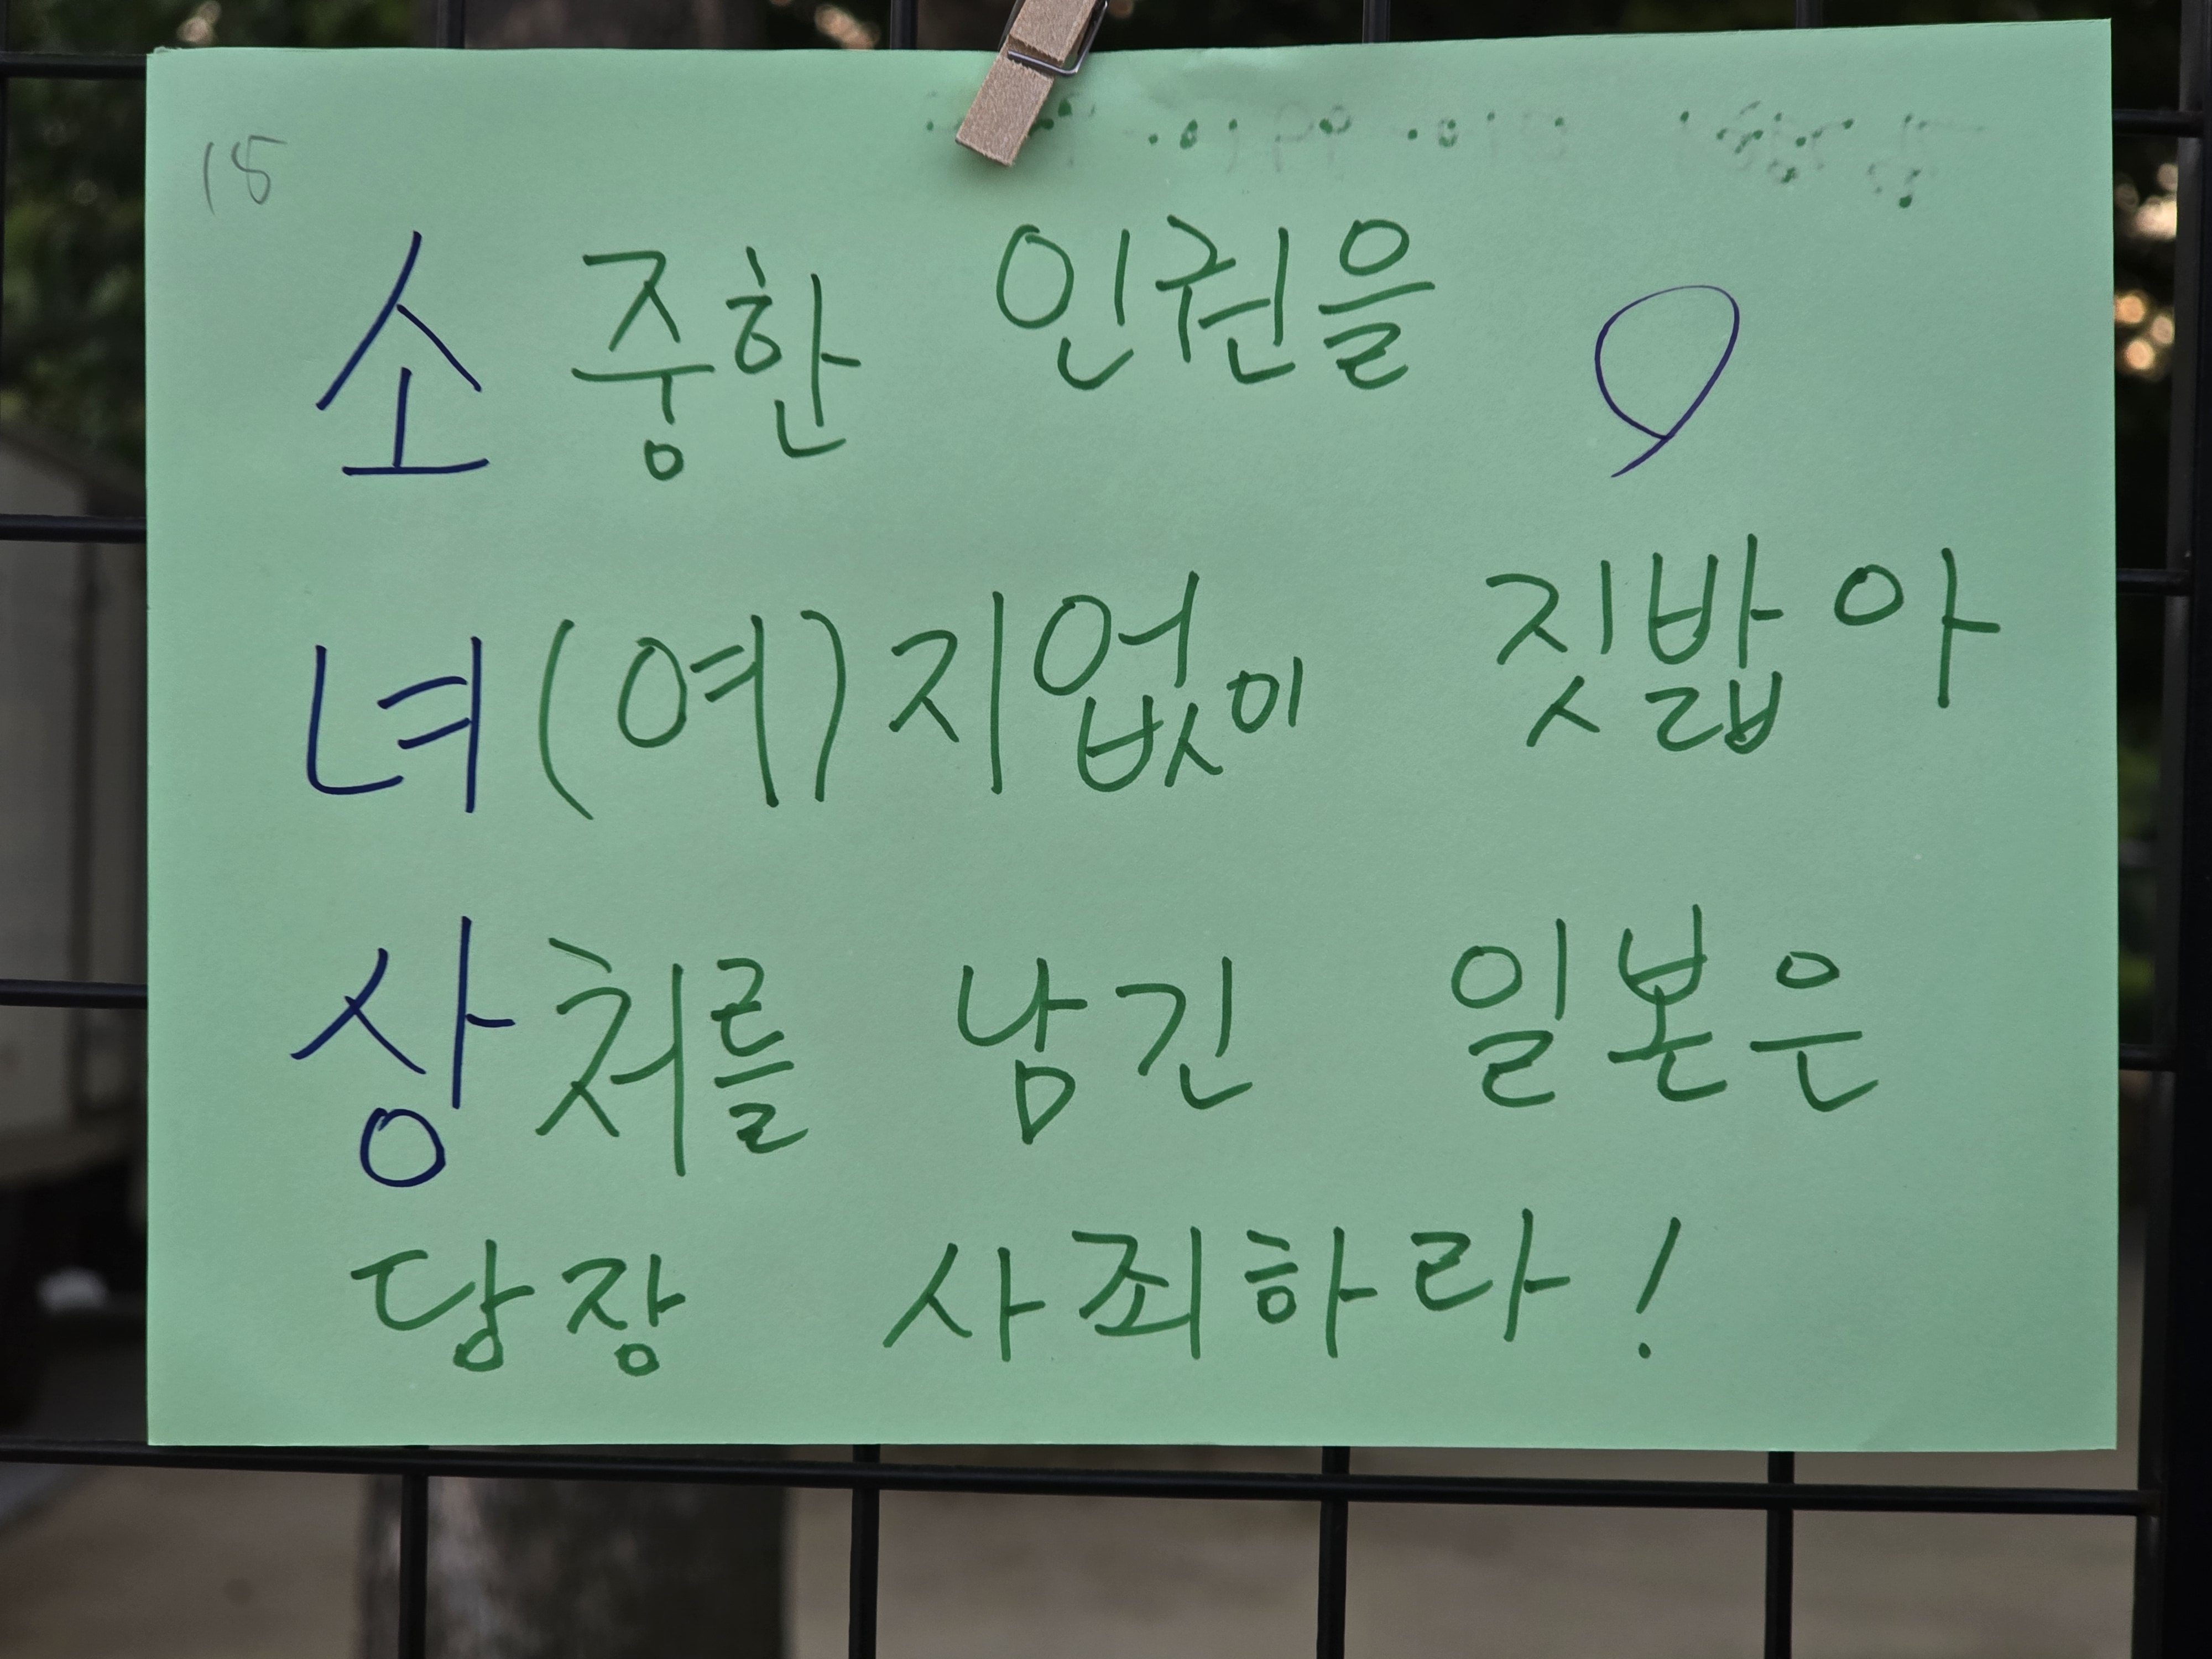 15
소중한 인권을
녀(여)지없이 짓밟아
상처를 남긴 일본은
당장 사죄하라!